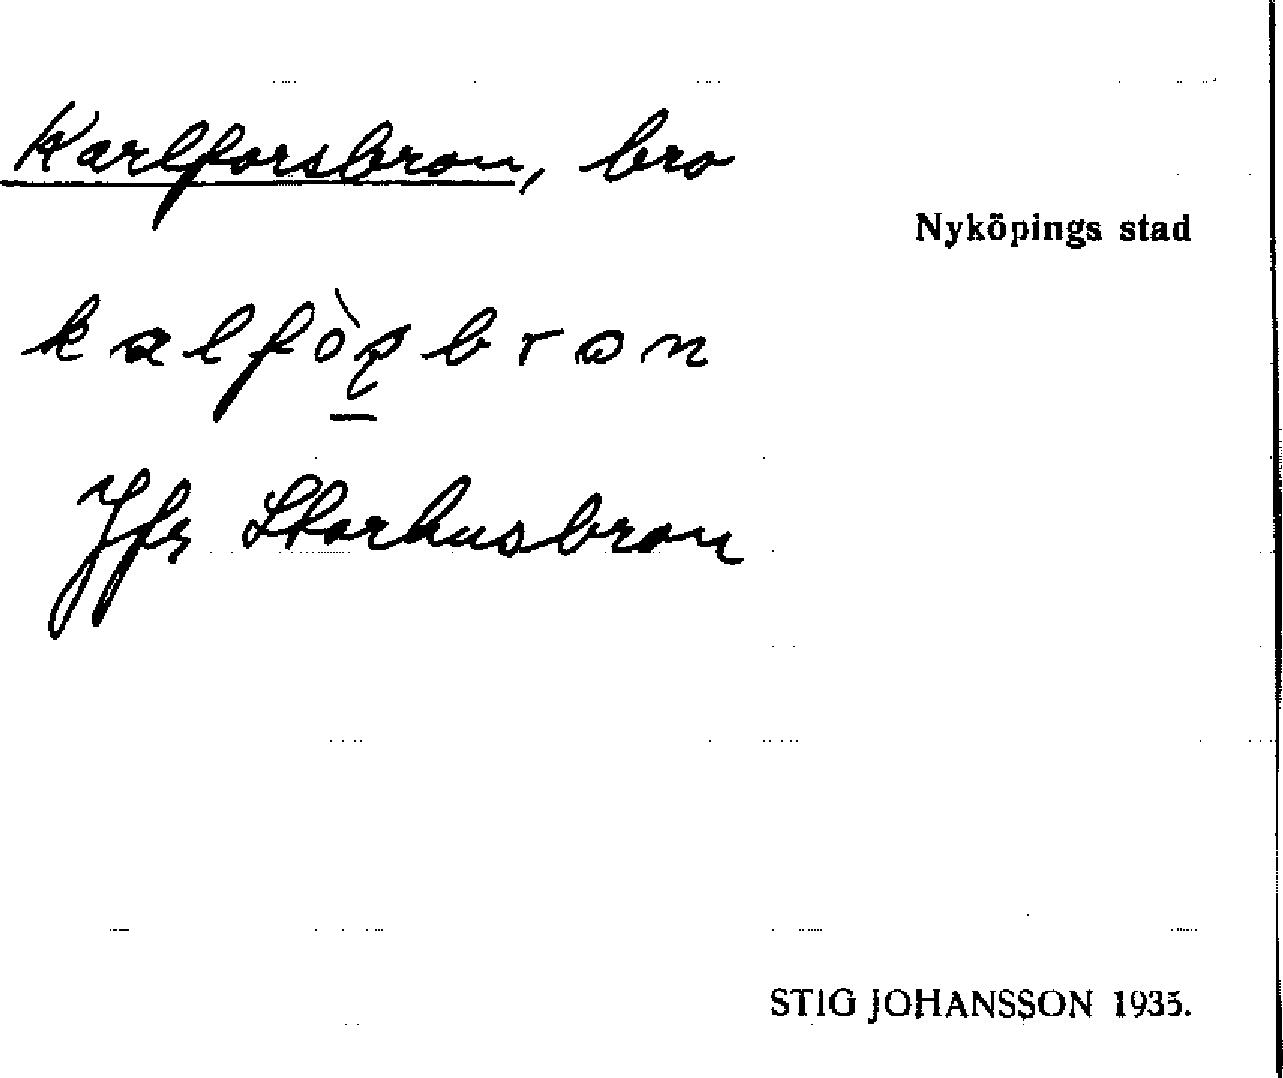 Karlforsbron, bro
Nyköpings stad
Jfr Storhusbron
STIG JOHANSSON 1935.